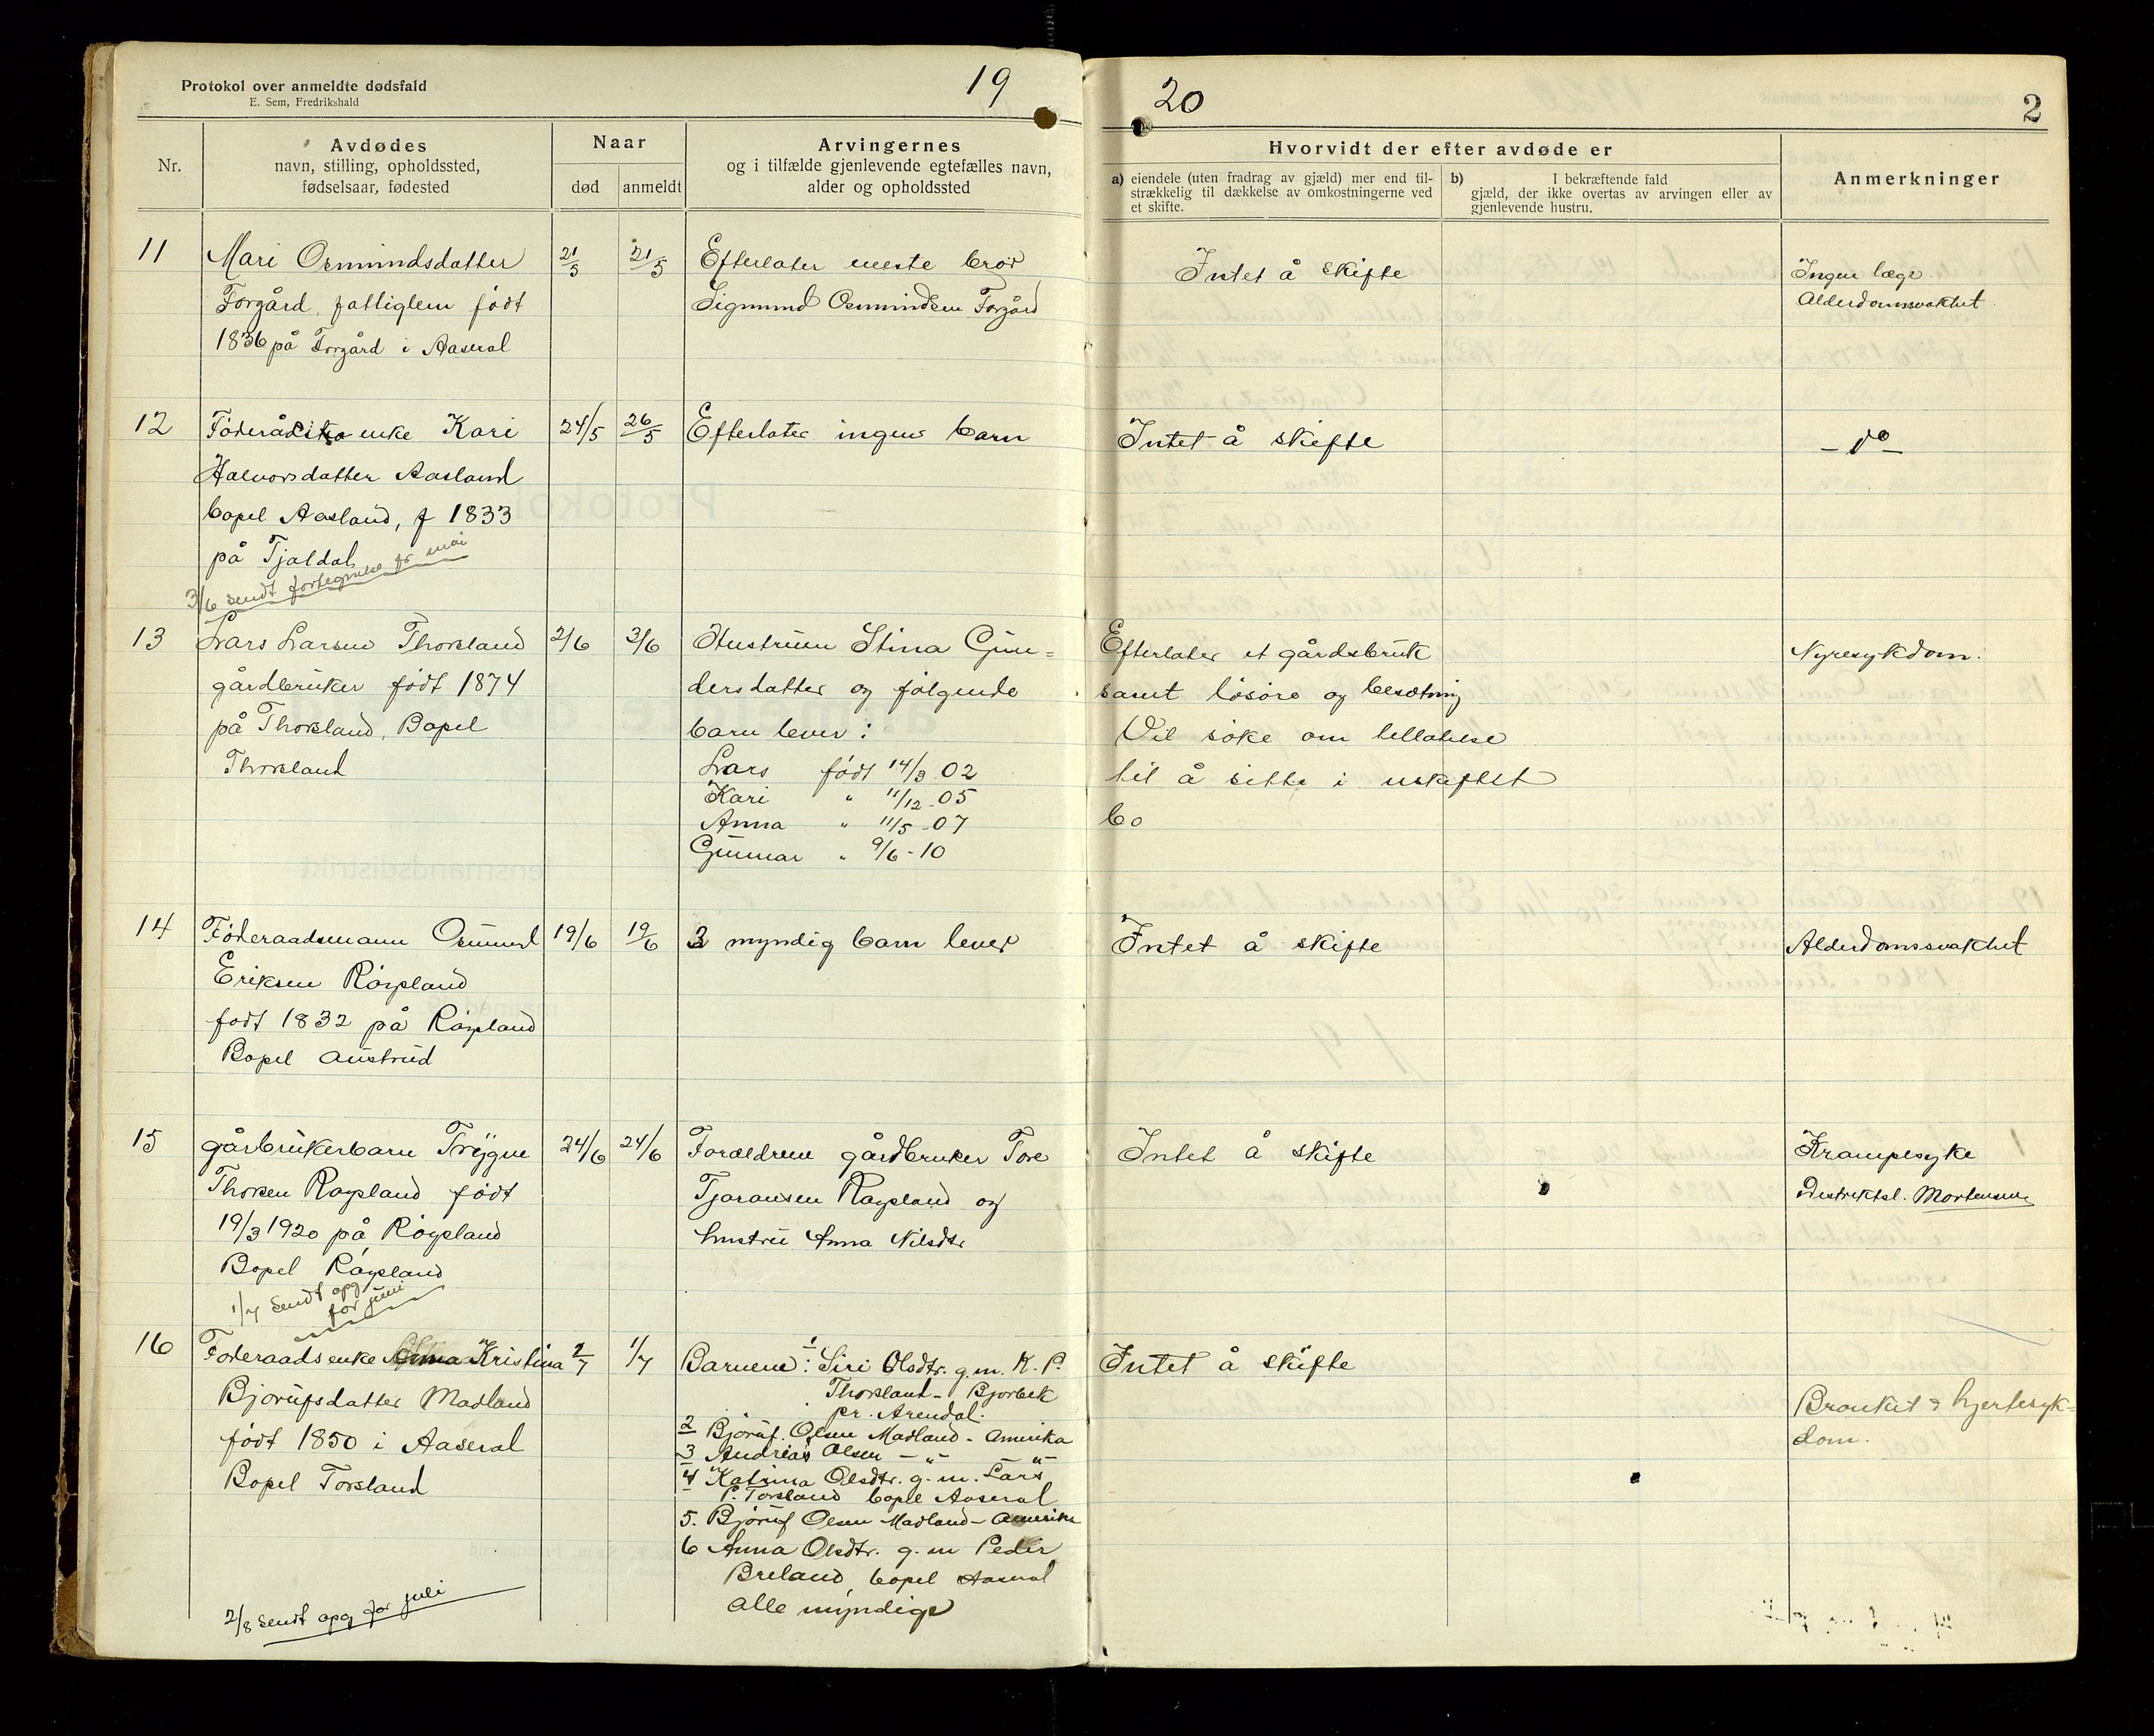 Protokol over anmeldte dødsfald
E. Sem, Fredrikshald
19
20
2
Nr.
Avdødes
navn, stilling, opholdssted,
fødselsaar, fødested
Naar
død
anmeldt
Arvingernes
og i tilfælde gjenlevende egtefælles navn,
alder og opholdssted
Hvorvidt der efter avdøde er
a) eiendele (uten fradrag av gjæld) mer end til-
strækkelig til dækkelse av omkostningerne ved
et skifte.
b) I bekræftende fald
gjæld, der ikke overtas av arvingen eller av
gjenlevende hustru.
Anmerkninger
11
Mari Osmundsdatter
Forgård, fattiglem født
1836 på Forgård i Aaseral
21/5
21/5
Efterlater neste bror
Sigmund Osmundsen Forgård
Intet å skifte
Ingen læge.
Alderdomsvakhet
12
Føderåds enke Kari
Halvorsdatter Aasland
bopel Aasland, f 1833
på Tjaldal
24/5
26/5
Efterlater ingen barn
Intet å skifte
- do -
3/6 sendt fortegnelse for mai
13
Lars Larsen Thorsland
gårdbruker født 1874
på Thorsland, Bopel
Thorsland
2/6
3/6
Hustruen Stina Gun=
dersdatter og følgende
barn lever:
Lars født 14/3 02
Kari " 11/12 - 05
Anna " 11/5 - 07
Gunnar " 9/6 - 10
Efterlater et gårdsbruk
samt løsøre og besætning
Vil søke om tillatelse
til å sitte i uskiftet
bo
Nyresykdom.
14
Føderaadsmann Osmund
Eriksen Røysland
født 1832 på Røysland
Bopel Austrud
19/6
19/6
3 myndig barn lever
Intet å skifte
Alderdomssvakhet
15
gårbrukerbarn Trygve
Thorsen Røysland født
19/3 1920 på Røysland
Bopel Røysland
24/6
24/6
Forældrene gårdbruker Tore
Tjøransen Røysland og
hustru Anna Nilsdtr
Intet å skifte
Krampesyke
Distriktsl. Mortensen
1/7 sendt opg
for juni
16
Føderaadsenke Kristina
Bjorufsdatter Madland
født 1850 i Aaseral
Bopel Torsland
2/7
1/7
Barnene: 1 Siri Olsdtr. g.m. K. P.
Thorsland - Bjorbek
pr. Arendal.
2 Bjoruf. Olsen Madland - Amerika
3 Andreas Olsen - " - "
4 Katrina Olsdtr. g. m. Lars
P. Torsland bopel Aaseral
5. Bjoruf Olsen Madland - Amerika
6 Anna Olsdtr. g. m Peder
Breland, bopel Aaseral
Alle myndige
Intet å skifte
Bronkit & hjertesyk=
dom.
2/8 sendt opg for juli